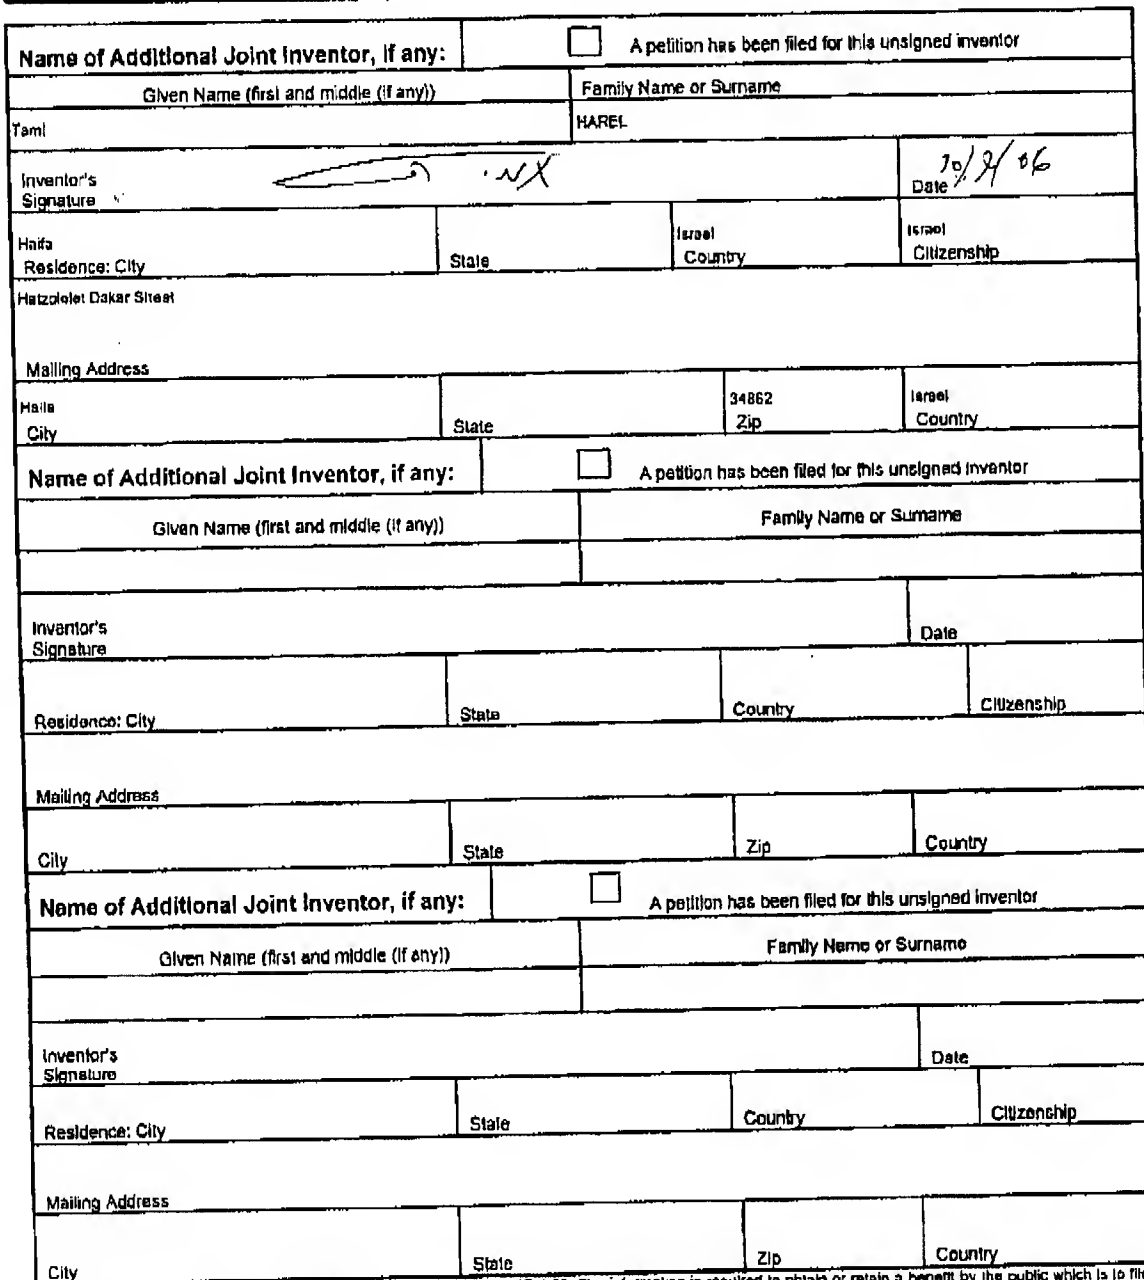 Name of Additional Joint Inventor, if any: A petition has been filed for this unsigned inventor
Given Name (first and middle (if any)) Family Name or Surname
Tami HAREL
Inventor's
Signature Date
Haifa Israel Israel
Residence: City State Country Citizenship
Hatzolelet Dakar Street
Mailing Address
Haifa 34862 Israel
City State Zip Country
Name of Additional Joint Inventor, if any: A petition has been filed for this unsigned inventor
Given Name (first and middle (if any)) Family Name or Surname
Inventor's
Signature Date
Residence: City State Country Citizenship
Mailing Address
City State Zip Country
Name of Additional Joint Inventor, if any: A petition has been filed for this unsigned inventor
Given Name (first and middle (if any)) Family Name or Surname
Inventor's
Signature Date
Residence: City State Country Citizenship
Mailing Address
City State Zip Country
is required to obtain or retain a benefit by the public which is to file